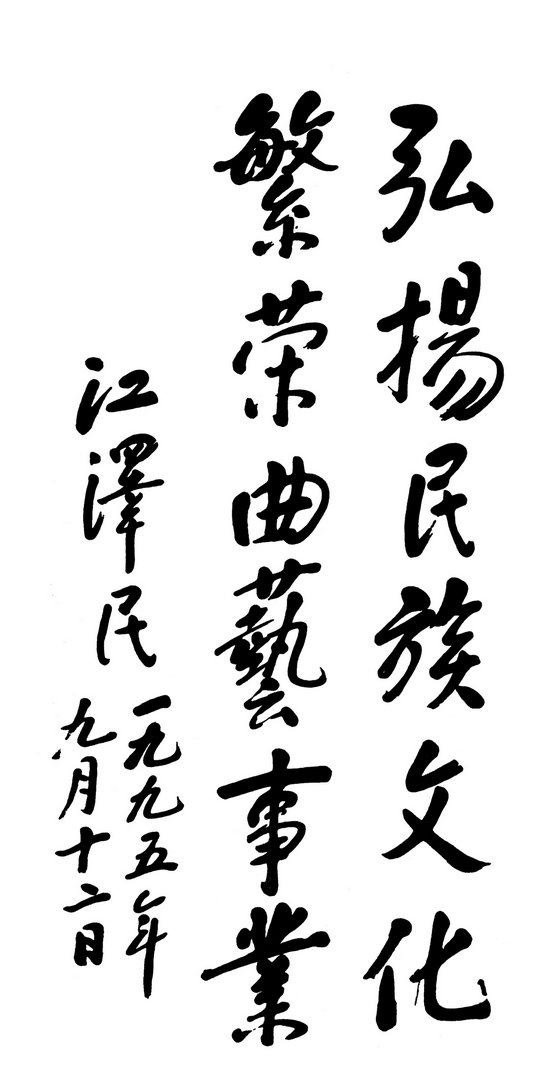 弘揚民族文化
繁荣曲藝事業
江澤民
一九九五年
九月十二日